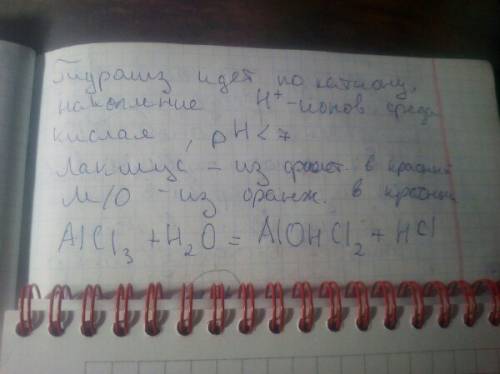 Гидролиз идет по катиону,
накопление H⁺-ионов среда
кислая, pH<7
Лакмус - из фиолет. в красный
М/О - из оранж. в красный
AlCl₃ + H₂O = AlOHCl₂ + HCl